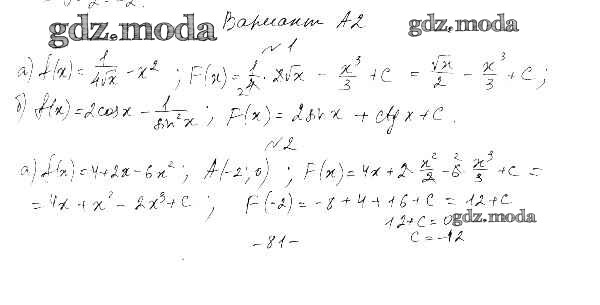 Вариант А2
gdz.moda
gdz.moda
№1
а) f(x) = 1/(4√x) - x² ; F(x) = 1/4 · 2√x - x³/3 + C = √x/2 - x³/3 + C ;
б) f(x) = 2cosx - 1/sin²x ; F(x) = 2sin x + ctg x + C .
№2
а) f(x) = 4+2x-6x² ; A(-2; 0) ; F(x) = 4x + 2 · x²/2 - 6 · x³/3 + C =
= 4x + x² - 2x³ + C ; F(-2) = -8 + 4 + 16 + C = 12 + C
12 + C = 0
gdz.moda
C = -12
- 81 -